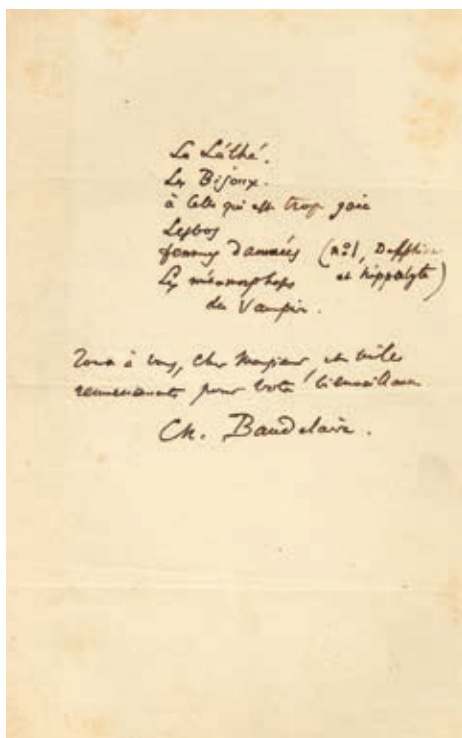 Le Léthé.
Les Bijoux.
à celle qui est trop gaie
Lesbos
femmes damnées (no 1, Delphine
et hippolyte)
Les métamorphoses
du Vampire.
Tout à vous, cher Monsieur, et mille
remerciements pour votre bienveillance
Ch. Baudelaire.